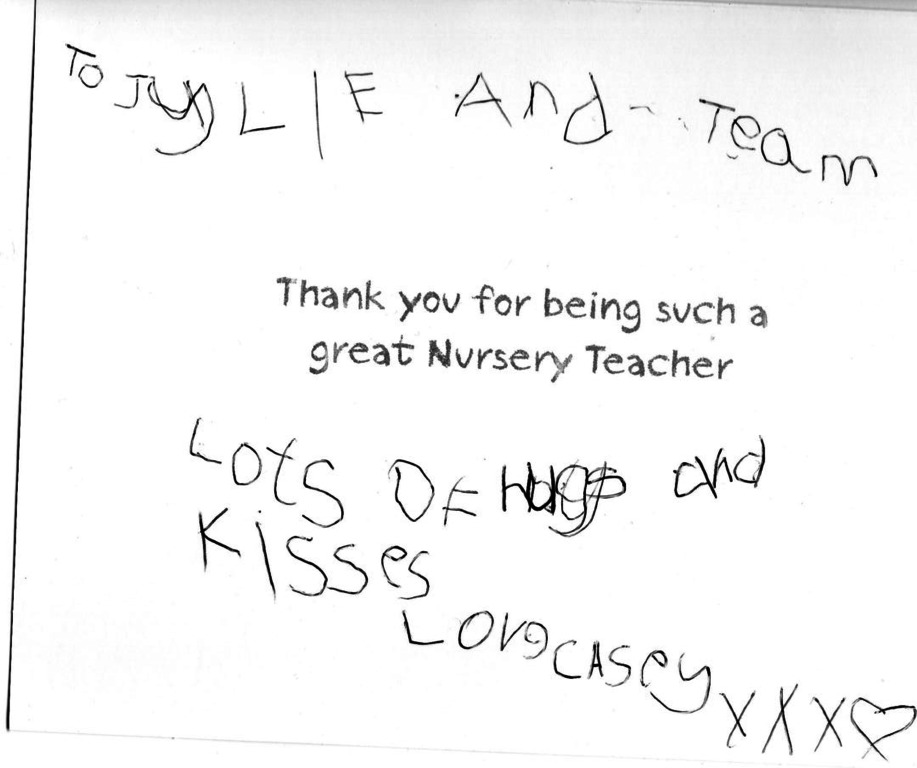 To JuyLIE And Team
Thank you for being such a
great Nursery Teacher
Lots OF Hugs and
Kisses
Love CASey XXX♡